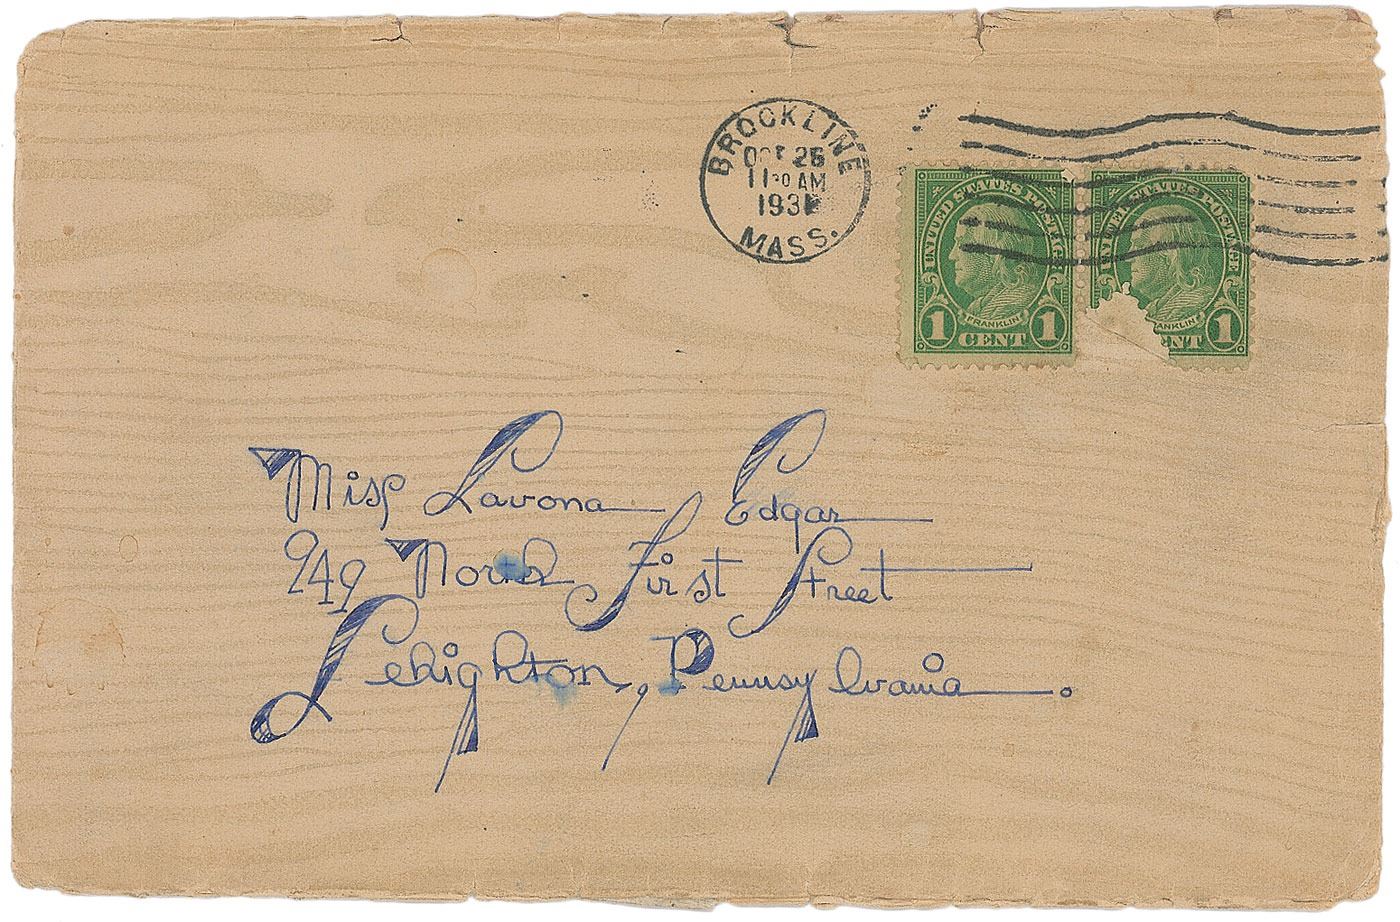 BROOKLINE
OCT 26
11 30 AM
MASS.
UNITED STATES POSTAGE
FRANKLIN
1 CENT 1
UNITED STATES POSTAGE
1
Miss Lavona Edgar
949 North First Street
Lehighton, Pennsylvania.